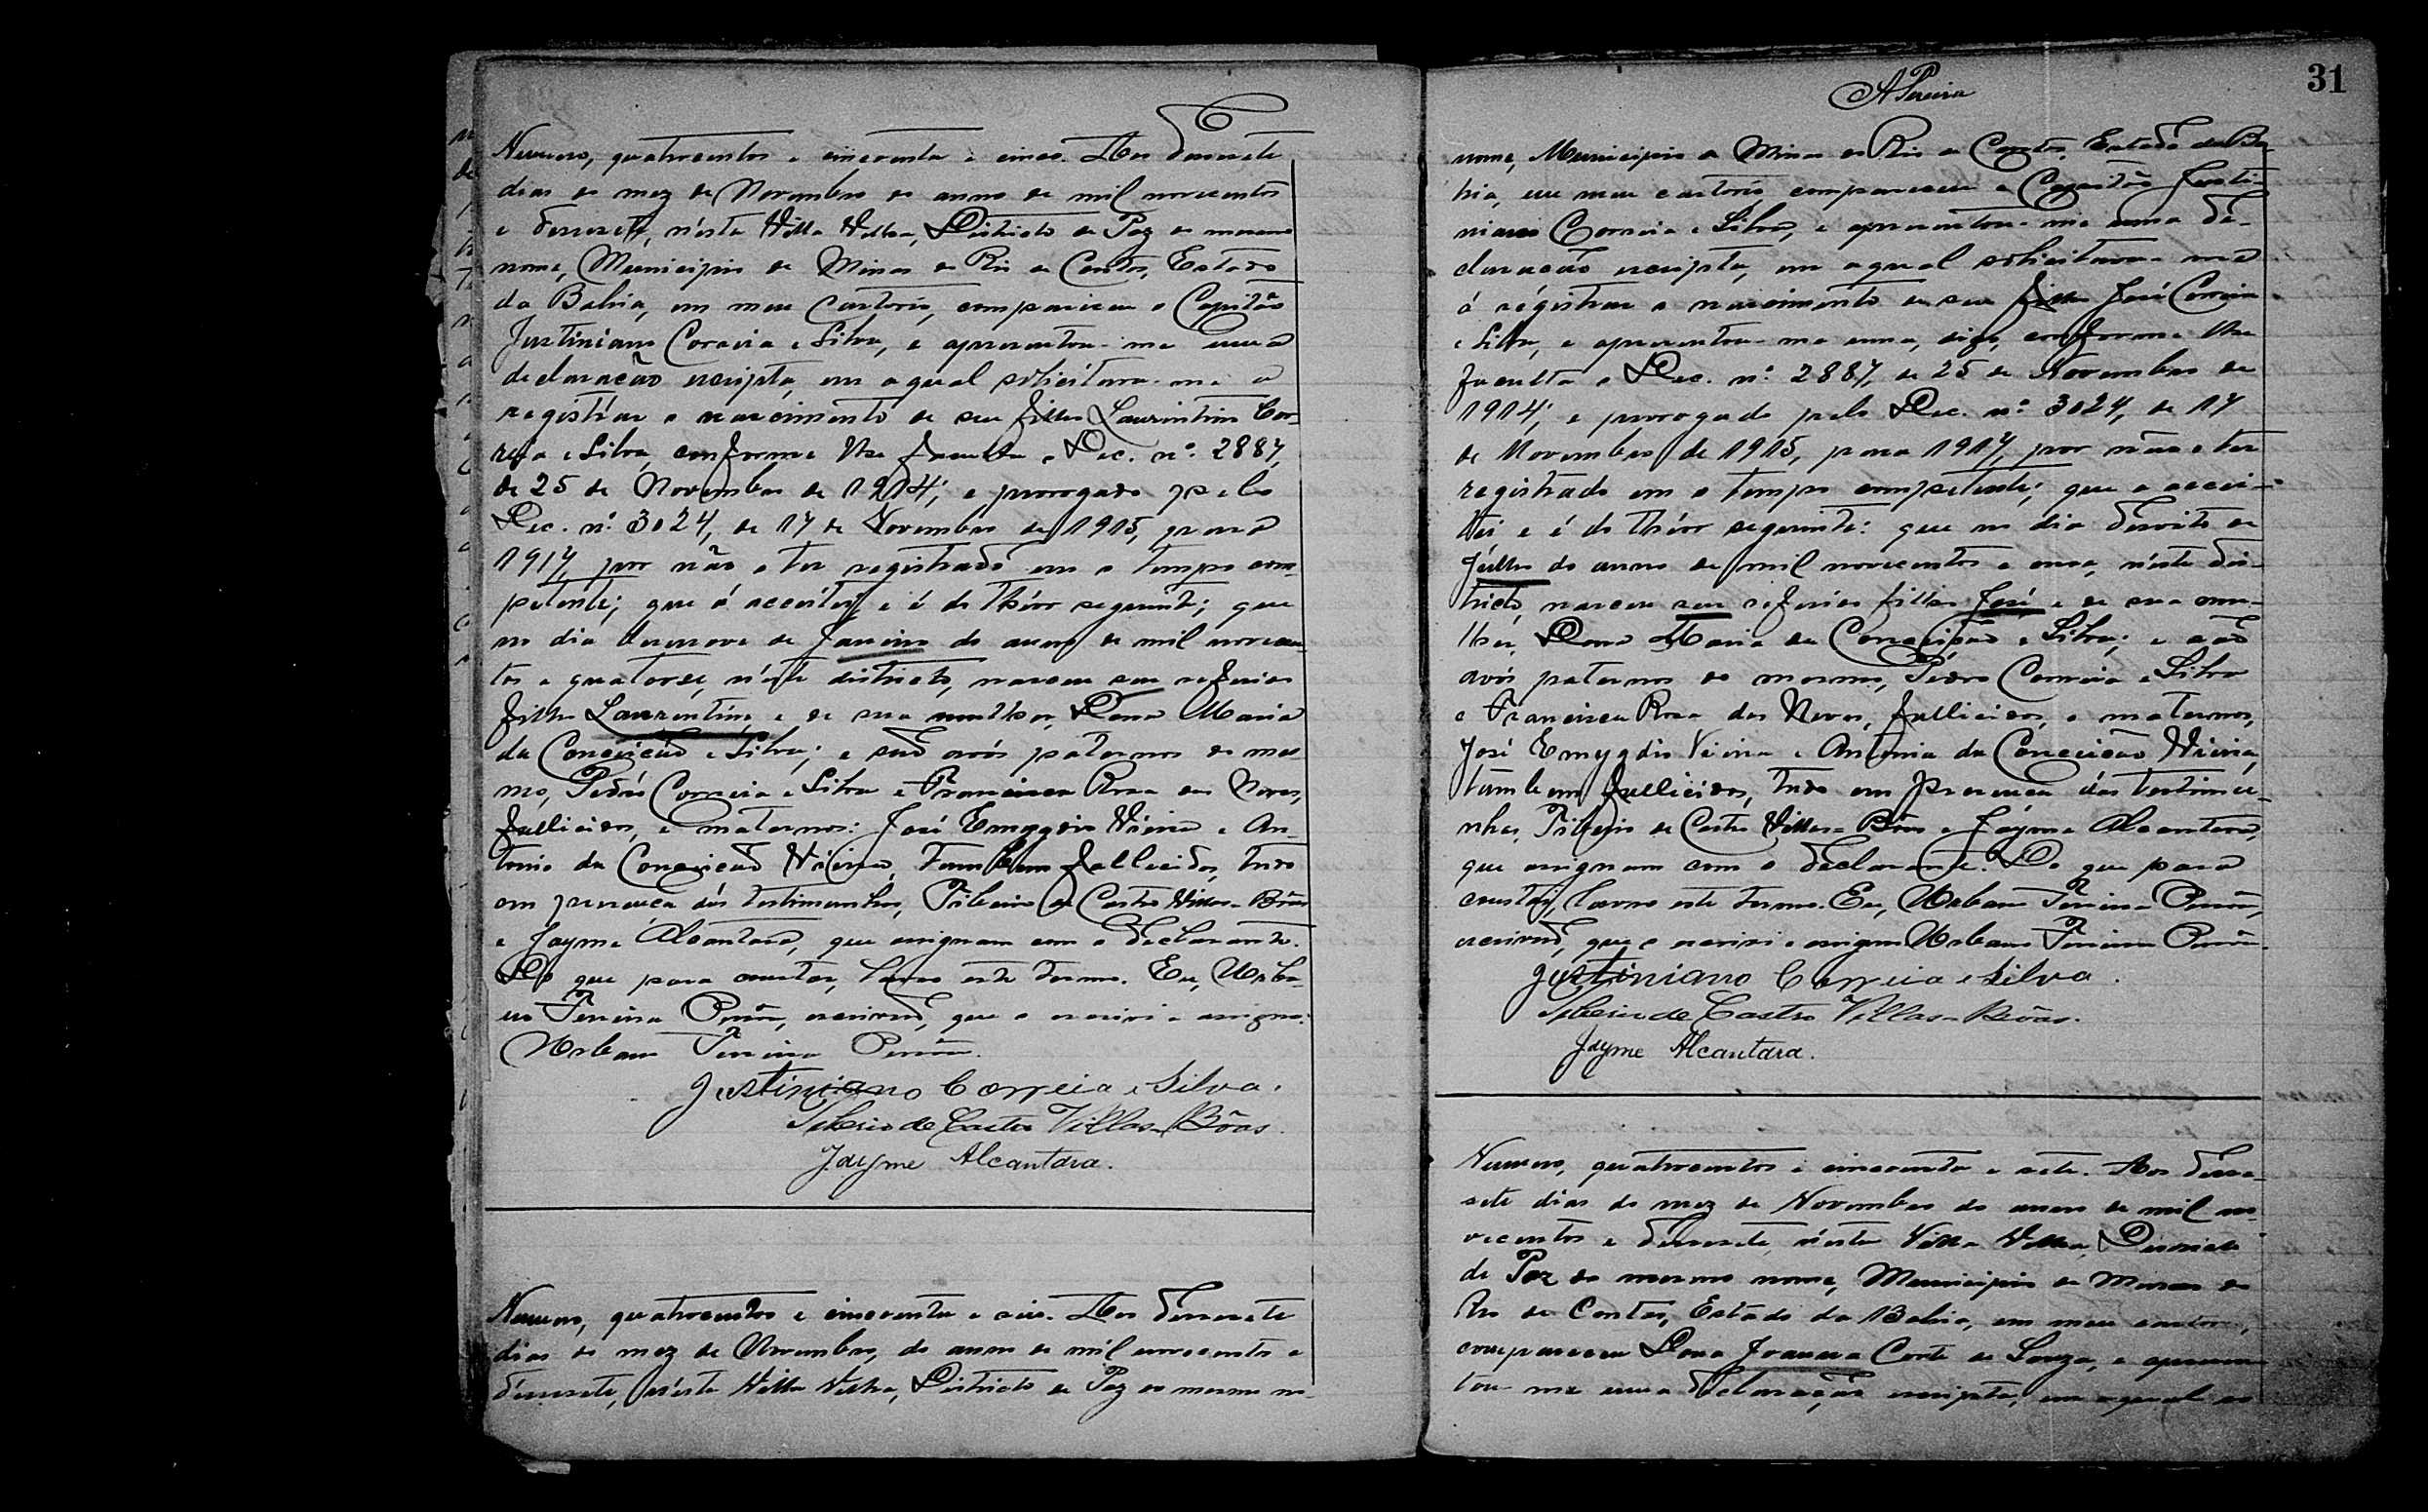 Numero, quatrocentos e cincoenta e cinco. Aos desesete
dias do mez de Novembro do anno de mil novecentos
e desesete, n'esta Villa Velha, Districto de Paz do mesmo
nome, Municipio de Minas do Rio de Contas, Estado
da Bahia, em meu cartorio, compareceu o Capitão
Justiniano Correia e Silva, e apresentou-me uma
declaração escripta, em a qual solicitava-me a
registrar o nascimento de seu filho Laurentino Cor-
reia e Silva, conforme lhe faculta o Dec. nº 2887,
de 25 de Novembro de 1914; e prorogado pelo
Dec. nº 3024, de 17 de Novembro de 1915, para
1917, por não o ter registrado em o tempo com-
petente; que o acceitei e é do theor seguinte; que
no dia desenove de Janeiro do anno de mil novecen-
tos e quatorse, n'este districto, nasceu seu referido
filho Laurentino, e de sua mulher, Dona Maria
da Conceição e Silva; e são avós paternos do mes-
mo, Pedro Correia e Silva e Francisca Rosa das Neves,
fallecidos, e maternos: José Emygdio Vieira e An-
tonia da Conceição Vieira, tambem fallecidos, tudo
em presença das testimunhas, Tiberio de Castro Villas-Bôas
e Jayme Alcantara, que assignam com o declarante.
Do que para constar, lavro este termo. Eu, Urba-
no Pereira, escrivão, que o escrevi e assigno.
Urbano Pereira
Justiniano Correia e Silva.
Tiberio de Castro Villas-Bôas.
Jayme Alcantara.
Numero, quatrocentos e cincoenta e seis. Aos desesete
dias do mez de Novembro, do anno de mil novecentos e
desesete, n'esta Villa Velha, Districto de Paz do mesmo no-
31
APereira
nome, Municipio de Minas do Rio de Contas, Estado da Ba-
hia, em meu cartorio, compareceu o Capitão Justi-
niano Correia e Silva, e apresentou-me uma de-
claração escripta, em a qual solicitava-me
á registrar o nascimento de seu filho José Correia
e Silva, e apresentou-me uma, digo, conforme lhe
faculta o Dec. nº 2887, de 25 de Novembro de
1914; e prorogado pelo Dec. nº 3024, de 17
de Novembro de 1915, para 1917, por não o ter
registrado em o tempo competente; que o accei-
tei e é do theor seguinte: que no dia desoito de
Julho do anno de mil novecentos e onze, n'este dis-
tricto, nasceu seu referido filho José e de sua mu-
lher, Dona Maria da Conceição e Silva; e são
avós paternos do mesmo, Pedro Correia e Silva
e Francisca Rosa das Neves, fallecidos, e maternos,
José Emygdio Vieira e Antonia da Conceição Vieira,
tambem fallecidos, tudo em presença das testimu-
nhas, Tiberio de Castro Villas-Bôas e Jayme Alcantara,
que assignam com o declarante. Do que para
constar, lavro este termo. Eu, Urbano Pereira
escrivão, que o escrevi e assigno Urbano Pereira
Justiniano Correia e Silva.
Tiberio de Castro Villas-Bôas.
Jayme Alcantara.
Numero, quatrocentos e cincoenta e sete. Aos dese-
sete dias do mez de Novembro do anno de mil no-
vecentos e desesete, n'esta Villa Velha, Districto
de Paz do mesmo nome, Municipio de Minas do
Rio de Contas, Estado da Bahia, em meu cartorio,
compareceu Dona Joanna Corte de Souza, e apresen-
tou-me uma declaração escripta, em a qual so